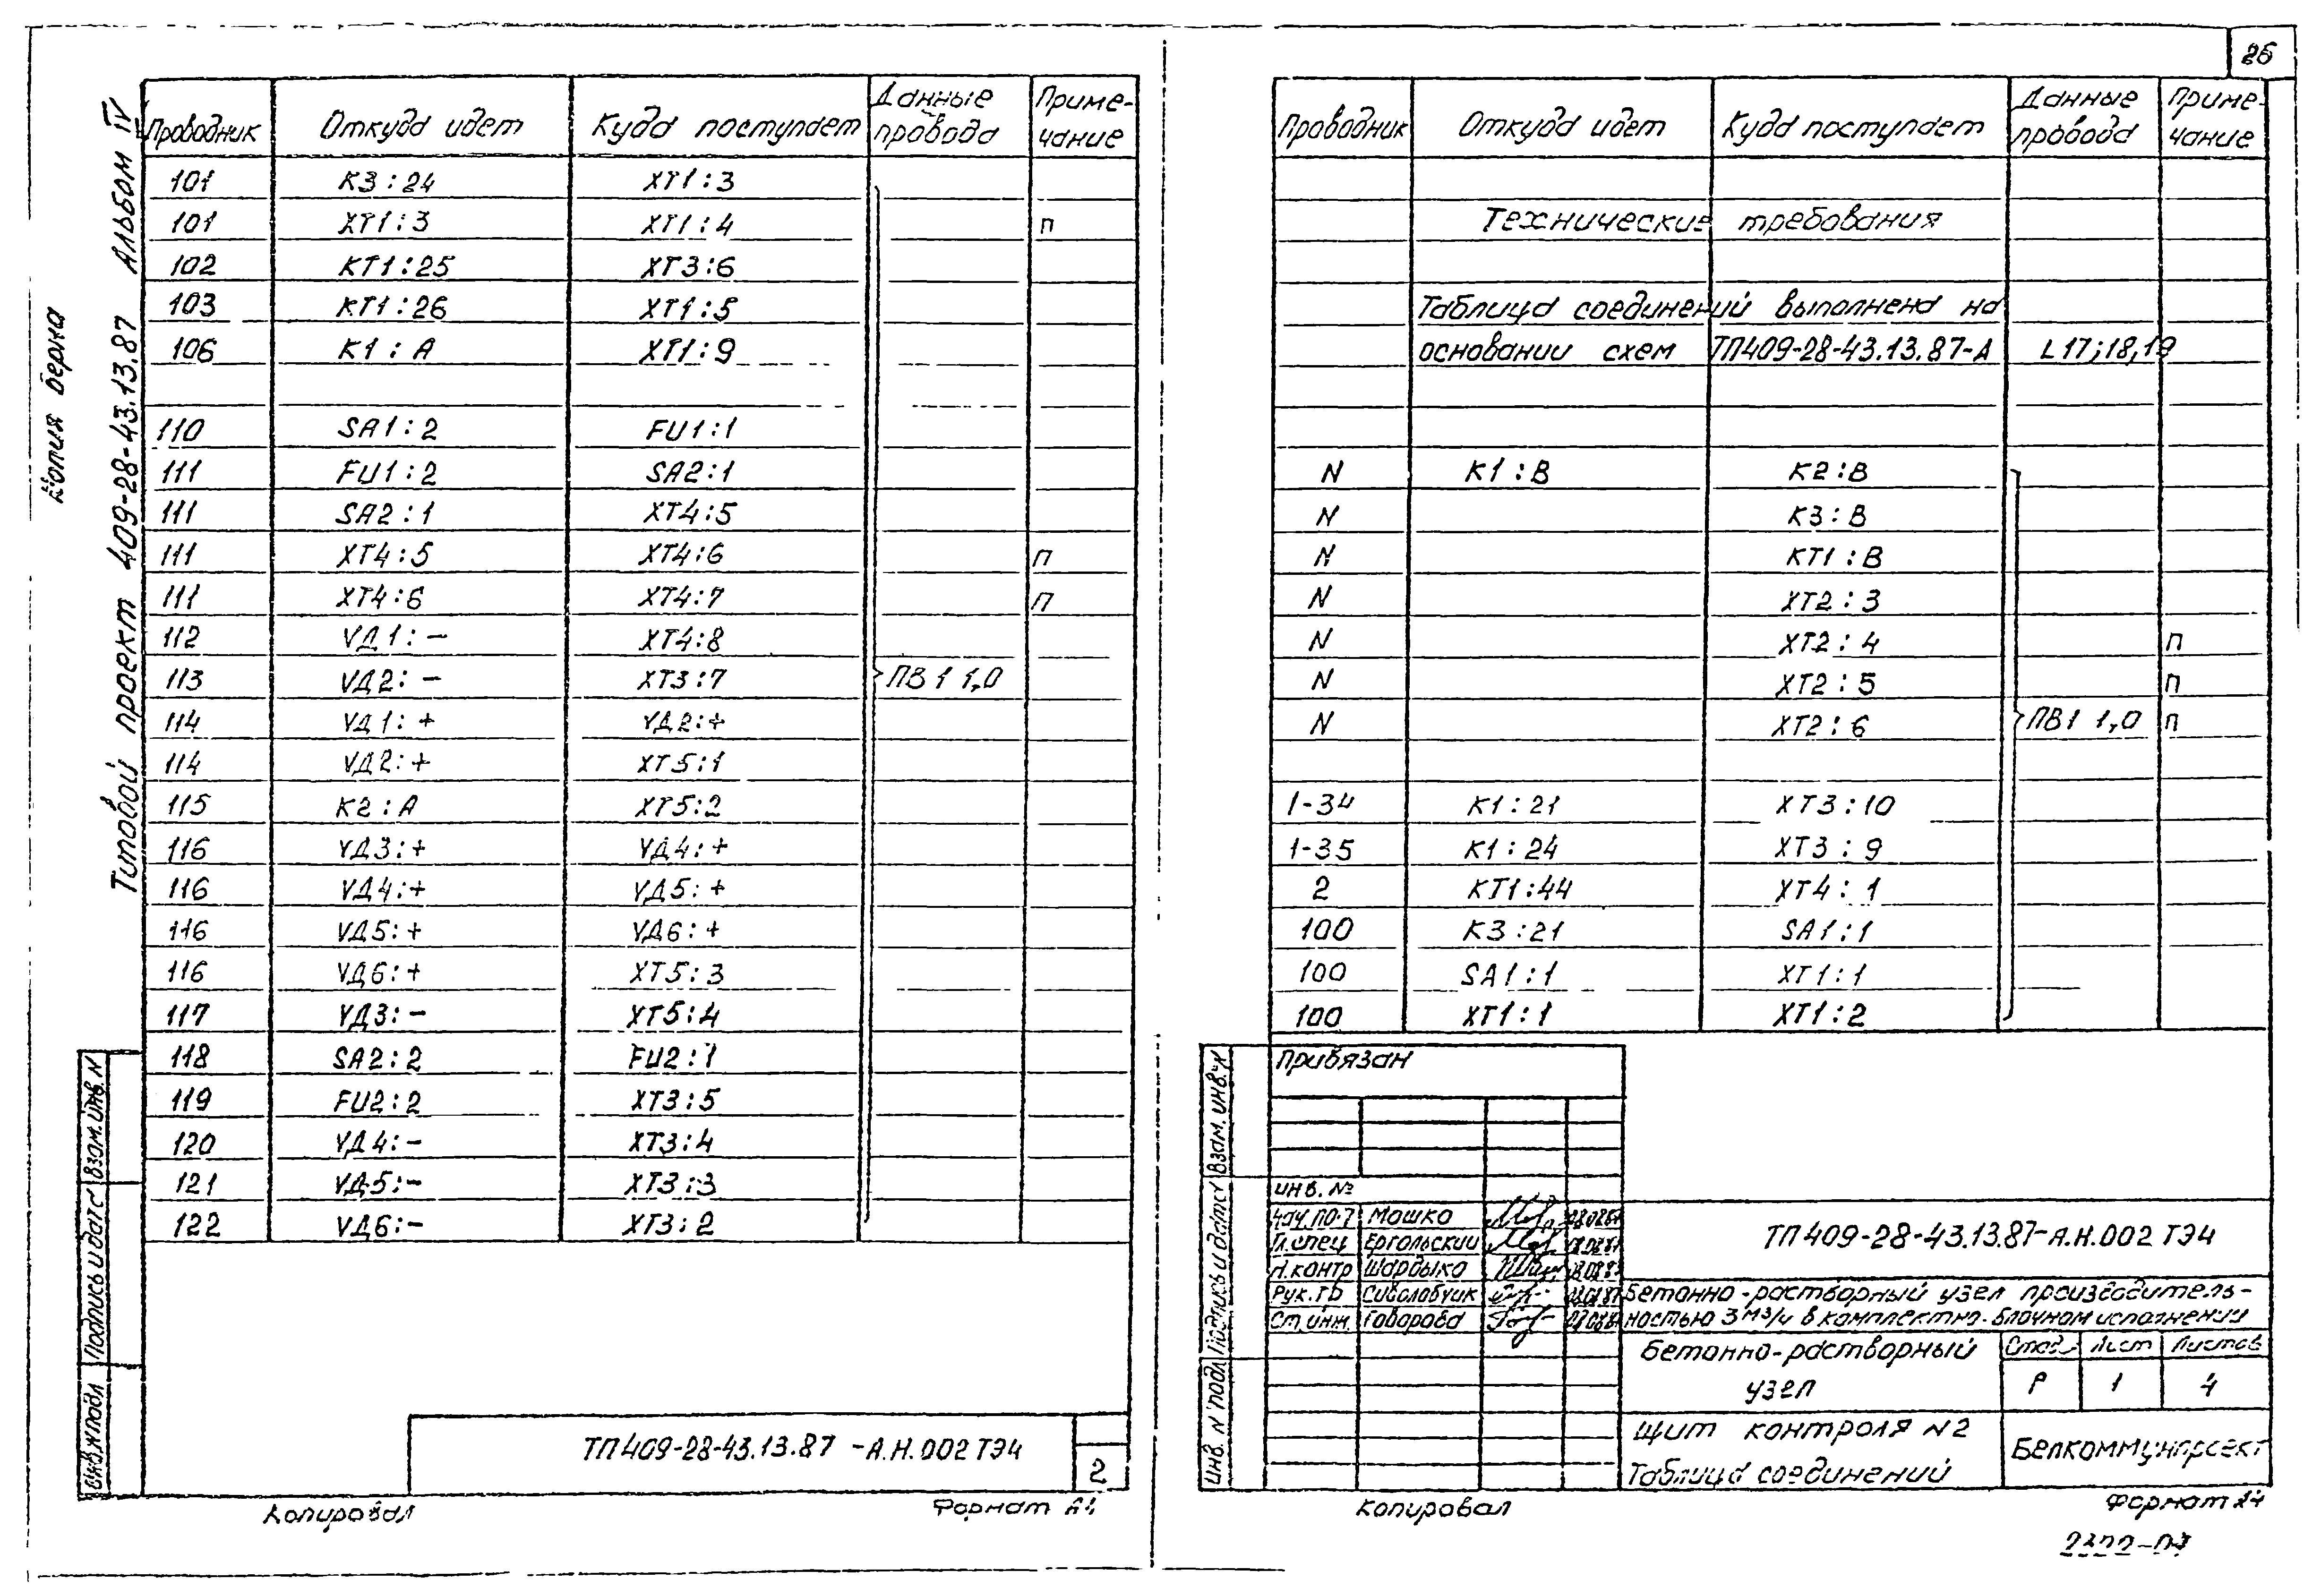 26
Копия верна
Типовой проект 409-28-43.13.87 Альбом IV
Проводник Откуда идет Куда поступает Данные провода Примечание
101 К3:24 ХТ1:3
101 ХТ1:3 ХТ1:4 п
102 КТ1:25 ХТ3:6
103 КТ1:26 ХТ1:5
106 К1:А ХТ1:9
110 SA1:2 FU1:1
111 FU1:2 SA2:1
111 SA2:1 ХТ4:5
111 ХТ4:5 ХТ4:6 п
111 ХТ4:6 ХТ4:7 п
112 VД1:- ХТ4:8
113 VД2:- ХТ3:7 ПВ1 1,0
114 VД1:+ VД2:+
114 VД2:+ ХТ5:1
115 К2:А ХТ5:2
116 VД3:+ VД4:+
116 VД4:+ VД5:+
116 VД5:+ VД6:+
116 VД6:+ ХТ5:3
117 VД3:- ХТ5:4
118 SA2:2 FU2:1
119 FU2:2 ХТ3:5
120 VД4:- ХТ3:4
121 VД5:- ХТ3:3
122 VД6:- ХТ3:2
Взам. инв. N
Подпись и дата
ТП409-28-43.13.87 -А.Н.002ТЭ4
2
Копировал
Формат
Проводник Откуда идет Куда поступает Данные провода Примечание
Технические требования
Таблица соединений выполнена на
основании схем ТП409-28-43.13.87-А L17;18,19
N К1:В К2:В
N К3:В
N КТ1:В
N ХТ2:3
N ХТ2:4 п
N ХТ2:5 п
N ХТ2:6 ПВ1 1,0 п
1-34 К1:21 ХТ3:10
1-35 К1:24 ХТ3:9
2 КТ1:44 ХТ4:1
100 К3:21 SA1:1
100 SA1:1 ХТ1:1
100 ХТ1:1 ХТ1:2
Привязан
инв. №
Взам. инв. N
Подпись и дата
Инв. N подл
Нач. ПО-7 Мошко
Гл. спец Ергольский
Н.контр Шардыко
Рук. гр Сиволобчик
Ст.инж. Говорова
ТП409-28-43.13.87-А.Н.002 ТЭ4
Бетонно-растворный узел производитель-
ностью 3 м³/ч в комплектно-блочном исполнении
Бетонно-растворный
узел
Стад. Лист Листов
Р 1 4
Щит контроля N2
Таблица соединений
Белкоммунпроект
Копировал
Формат